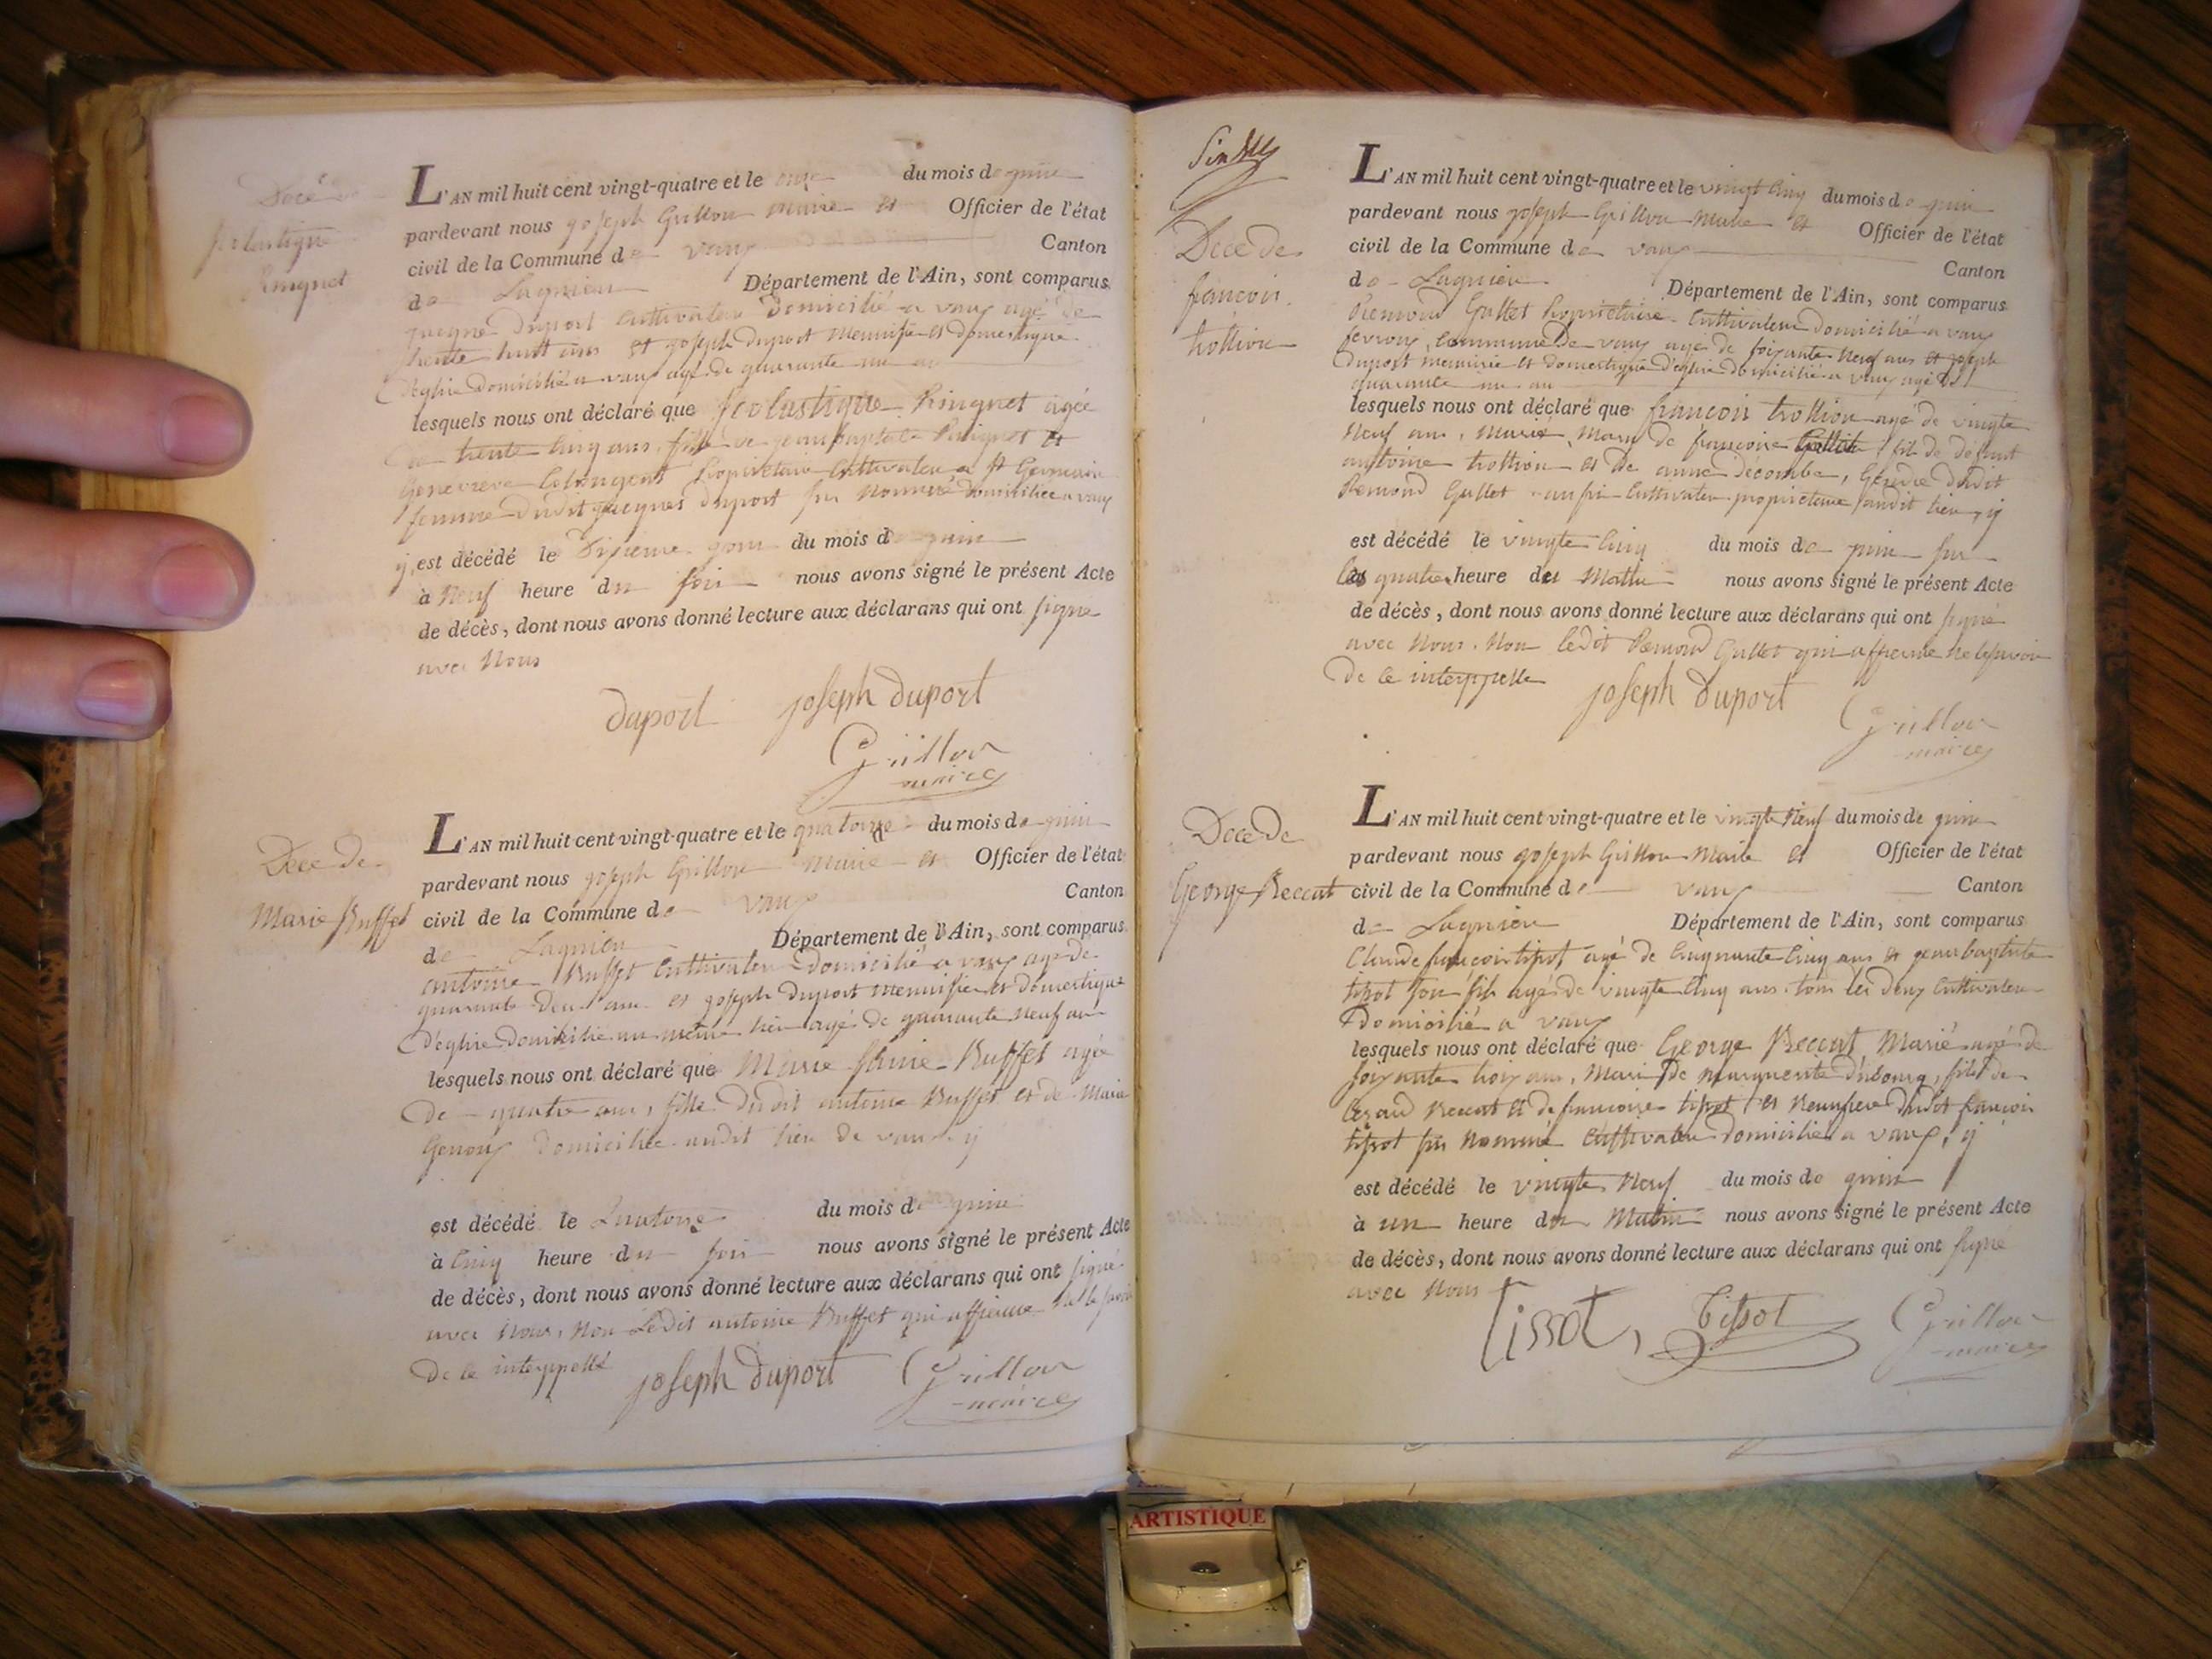 Décé de
scolastique
Ringuet
L'AN mil huit cent vingt-quatre et le onze du mois de juin
pardevant nous joseph Grillon maire et Officier de l'état
civil de la Commune de vaux Canton
de Lagnieu Département de l'Ain, sont comparus
jacque duport cultivateur domicilié a vaux agé de
trente huit ans et joseph duport menuisié et domestique
d'eglise domicilié a vaux agé de quarante un an
lesquels nous ont déclaré que scolastique Ringuet agée
de trente cinq ans, fille de jean baptiste Ringuet et
Genevieve propriétaire cultivateur a St Germain
femme dudit jacques duport sus nommé domiciliée a vaux
y, est décédé le dixieme jour du mois de juin
à neuf heure du soir nous avons signé le présent Acte
de décès, dont nous avons donné lecture aux déclarans qui ont signé
avec nous
duport joseph duport
Grillon
maire
Décé de
Marie Buffet
L'AN mil huit cent vingt-quatre et le quatorze du mois de juin
pardevant nous joseph Grillon Maire et Officier de l'état
civil de la Commune de vaux Canton
de Lagnieu Département de l'Ain, sont comparus
antoine Buffet cultivateur domicilié a vaux agé de
quarante deux ans et joseph duport menuisier et domestique
d'eglise domicilié au même lieu agé de quarante neuf an
lesquels nous ont déclaré que Marie Buffet agée
de quatre ans, fille dudit antoine Buffet et de Marie
Genoux domiciliée audit lieu de vaux y
est décédé le Quatorze du mois de juin
à cinq heure du soir nous avons signé le présent Acte
de décès, dont nous avons donné lecture aux déclarans qui ont signé
avec nous, non Ledit antoine Buffet qui affierme ne le savoir
de ce interppellé joseph duport Grillon
maire
Décé de
francois
trollion
L'AN mil huit cent vingt-quatre et le vingt cinq du mois de juin
pardevant nous joseph Grillon maire et Officier de l'état
civil de la Commune de vaux Canton
de Lagnieu Département de l'Ain, sont comparus
Remond Gullet propriétaire cultivateur domicilié a vaux
fevroux, commune de vaux agé de soixante neuf ans et joseph
duport menuisié et domestique d'eglise domicilié a vaux agé de
quarante un an
lesquels nous ont déclaré que francois trollion agé de vingte
neuf ans, marié, mary de francoise Gullet, fils de défunt
antoine trollion et de anne décombe, Gendre dudit
Remond Gullet aussi cultivateur propriétaire audit lieu, y
est décédé le vingte cinq du mois de juin sur
les quatre heure du Mattin nous avons signé le présent Acte
de décès, dont nous avons donné lecture aux déclarans qui ont signé
avec nous. non ledit Remond Gullet qui affierme ne le savoir
de ce interppellé joseph duport Grillon
maire
Décé de
George Reccat
L'AN mil huit cent vingt-quatre et le vingte neuf du mois de juin
pardevant nous joseph Grillon Maire et Officier de l'état
civil de la Commune de vaux Canton
de Lagnieu Département de l'Ain, sont comparus
Claude francois tisot agé de cinquante cinq ans et jean baptiste
tisot son fils agé de vingte cinq ans tous les deux cultivateur
domicilié a vaux
lesquels nous ont déclaré que George Reccat Marié agé de
soixante trois ans, Mari de marguerite dubourg, fils de
Reccat et de francoise tisot et dudit francois
tisot sus nommé cultivateur domicilié a vaux, y
est décédé le vingte neuf du mois de juin
à un heure du Matin nous avons signé le présent Acte
de décès, dont nous avons donné lecture aux déclarans qui ont signé
avec nous
Tissot, Tissot Grillon
maire
ARTISTIQUE